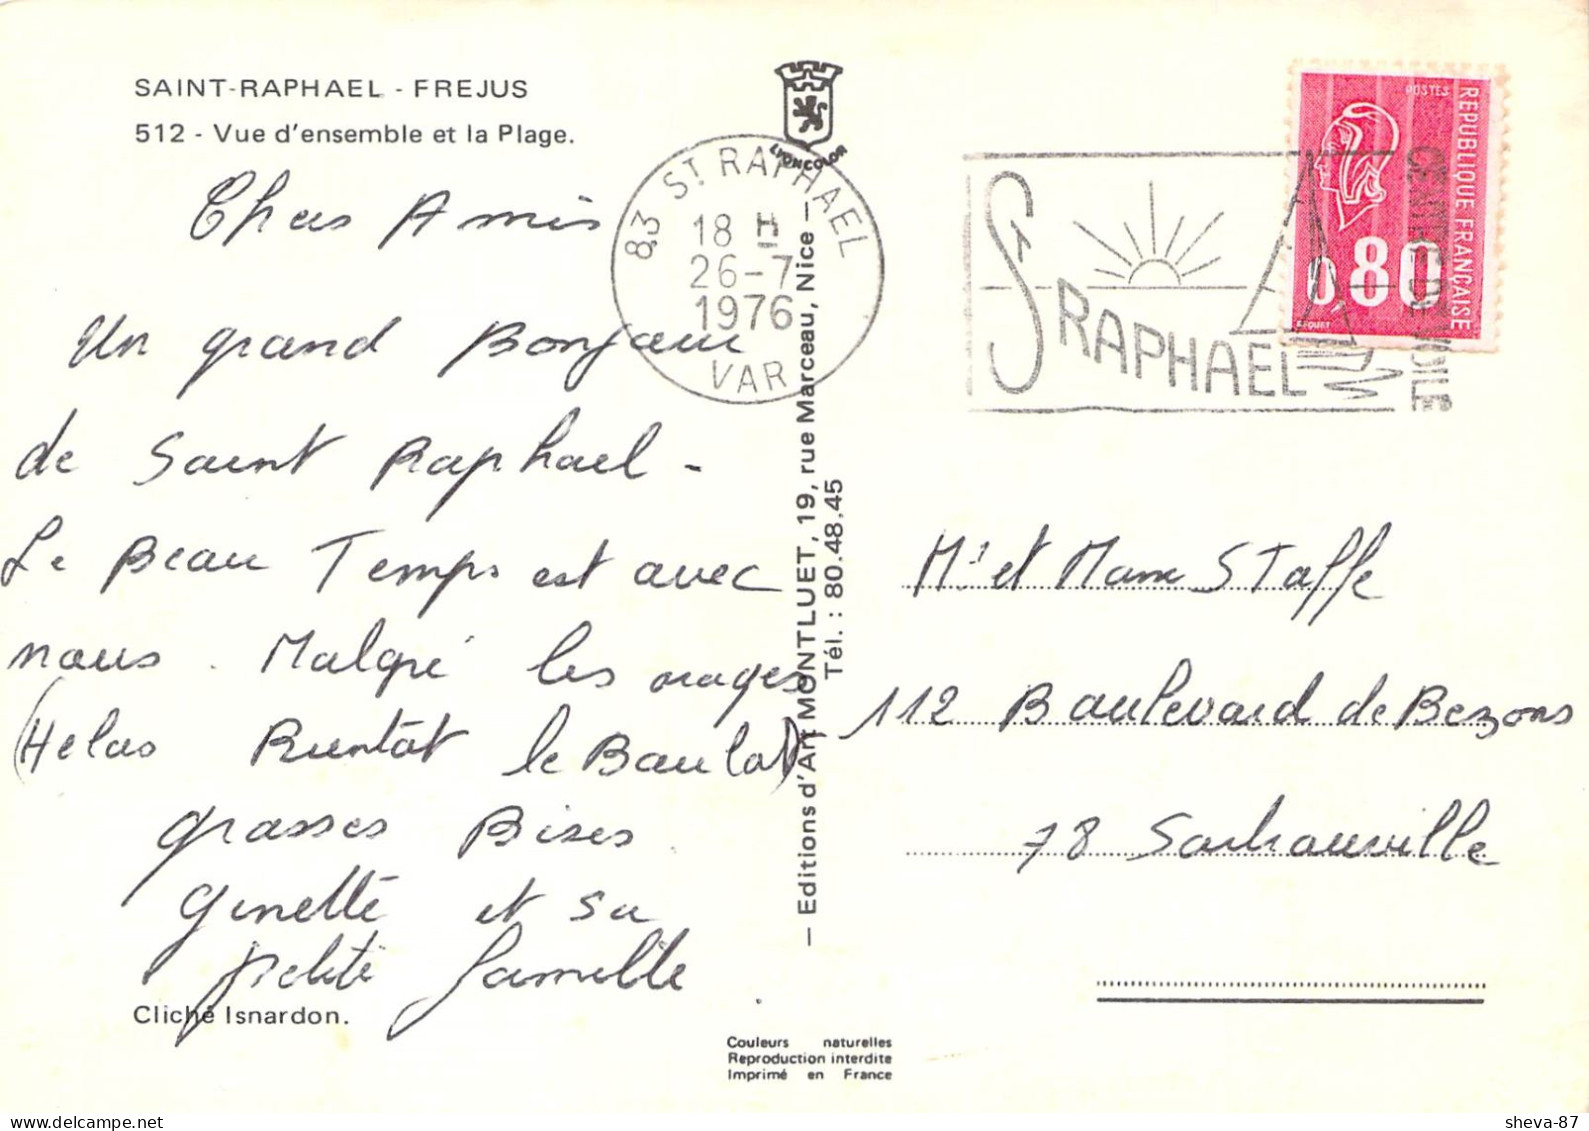 SAINT-RAPHAEL - FREJUS
512 - Vue d'ensemble et la Plage.
LYONCOLOR
83 ST RAPHAEL
18 H
26-7
1976
VAR
ST RAPHAEL
CENTRE DE VOILE
POSTES
REPUBLIQUE FRANÇAISE
0,80
Chers Amis
Un grand Bonjour
de Saint Raphael -
Le Beau Temps est avec
nous. Malgré les orages
(Helas Bientôt le Boulot)
grosses Bises.
Ginette et sa
petite famille
Mr et Mame Staffe
112 Boulevard de Bezons
78 Sartrouville
— Editions d'Art MONTLUET, 19, rue Marceau, Nice —
Tél. : 80.48.45
Cliché Isnardon.
Couleurs naturelles
Reproduction interdite
Imprimé en France
sheva-87